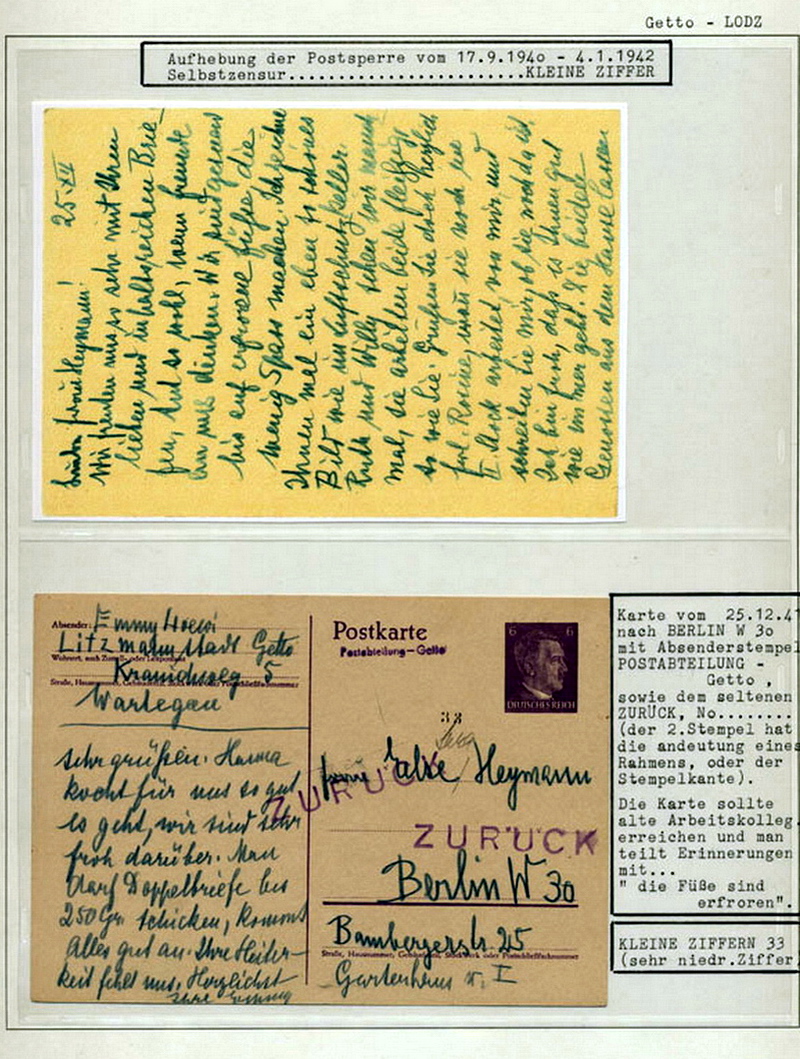 Getto - LODZ
Aufhebung der Postsperre vom 17.9.1940 - 4.1.1942
Selbstzensur........................KLEINE ZIFFER
25.XII
Frau Heymann!
Wir freuen uns so sehr mit Ihren
lieben und inhaltsreichen Brie-
fen, tut so wohl, wenn Freunde
an uns denken. Wir sind gesund
bis auf erfrorene Füße, die
wenig Spass machen. Ich zeichne
Ihnen mal ein eben so schönes
Bild wie im Luftschutzkeller.
Ruth und Willy sehen wir
mal, sie arbeiten beide fleissig
so wie Sie. Grüßen Sie doch herzlich
II. Stock arbeitet von mir und
schreiben Sie mir, ob sie noch da ist.
Ich bin froh, daß es Ihnen gut
wie immer geht. Die beiden
Genossen aus dem Hause lassen
Absender: Emmy
Litzmannstadt Getto
Wohnort, auch Zustell- oder Leitpostamt
Kranichweg 5
Straße, Hausnummer, Gebäudeteil, Stockwerk oder Postschließfachnummer
Wartegau
sehr grüßen. Hanna
kocht für uns so gut
es geht, wir sind sehr
froh darüber. Man
darf Doppelbriefe bis
250 Gr. schicken, kommt
alles gut an. Ihre Heiter-
keit fehlt uns. Herzlichst
Ihre Emmy
Postkarte
Postabteilung-Getto
6 6
DEUTSCHES REICH
33
Frau Heymann
ZURÜCK
ZURÜCK
Berlin W 30
Bambergerstr. 25
Straße, Hausnummer, Gebäudeteil, Stockwerk oder Postschließfachnummer
Gartenhaus v. I
Karte vom 25.12.41
nach BERLIN W 30
mit Absenderstempel
POSTABTEILUNG -
Getto ,
sowie dem seltenen
ZURÜCK, No........
(der 2.Stempel hat
die andeutung eines
Rahmens, oder der
Stempelkante).
Die Karte sollte
alte Arbeitskolleg.
erreichen und man
teilt Erinnerungen
mit...
" die Füße sind
erfroren".
KLEINE ZIFFERN 33
(sehr niedr.Ziffer)